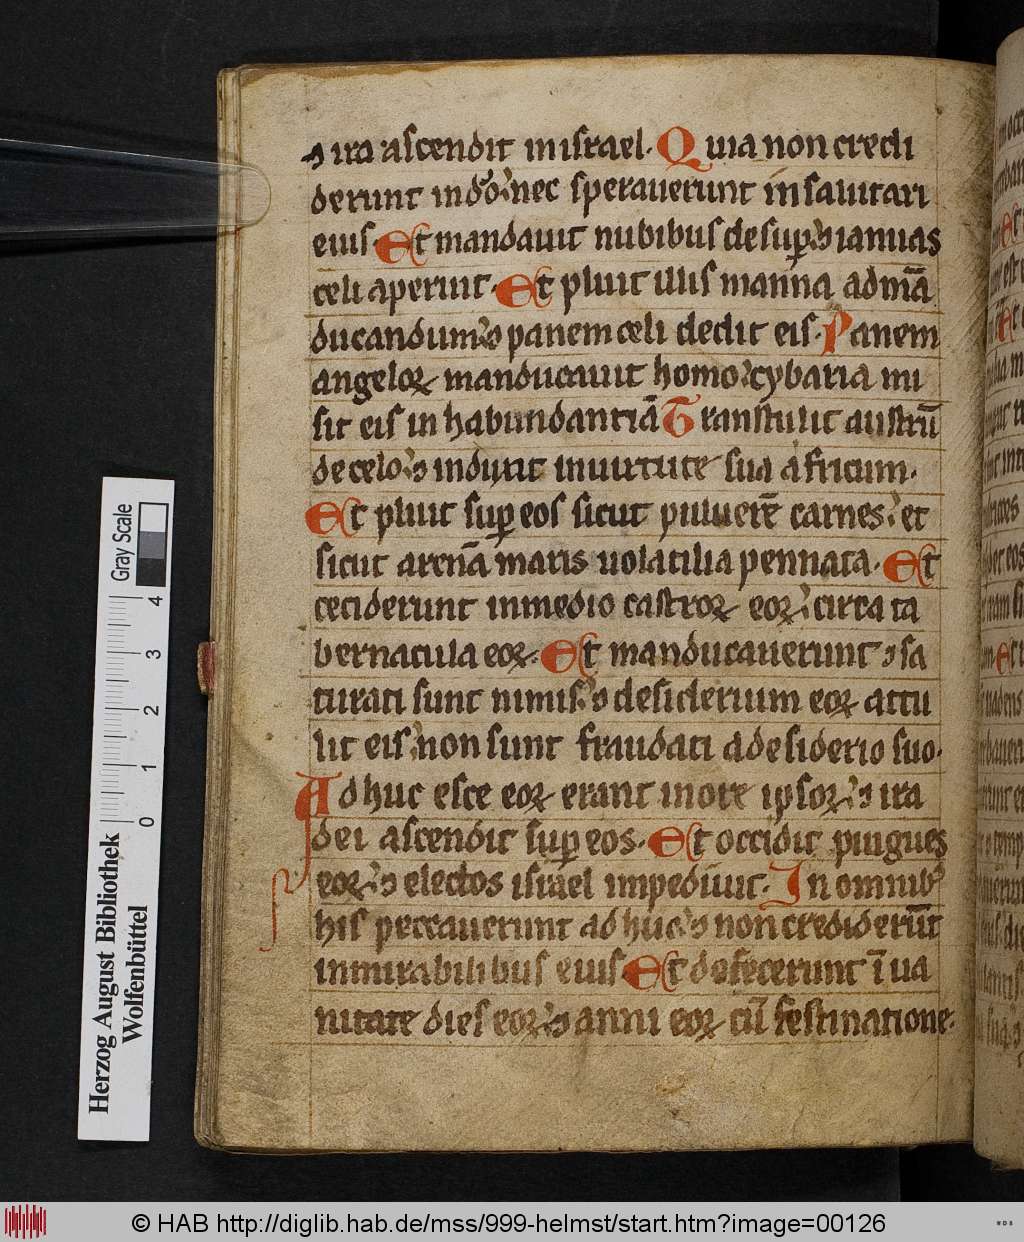 ⁊ ira ascendit in israel. Quia non credi
derunt in dō: nec sperauerunt in salutari
eius. Et mandauit nubibus desuꝑ: ⁊ ianuas
celi aperuit. Et pluit illis manna ad mā
ducandum: ⁊ panem celi dedit eis. Panem
angeloꝝ manducauit homo: cybaria mi
sit eis in habundantiā Transtulit austrū
de celo: ⁊ induxit in uirtute sua africum.
Et pluit suꝑ eos sicut puluerē carnes: et
sicut arenā maris uolatilia pennata. Et
ceciderunt in medio castroꝝ eoꝝ: circa ta
bernacula eoꝝ. Et manducauerunt ⁊ sa
turati sunt nimis: ⁊ desiderium eoꝝ attu
lit eis: non sunt fraudati a desiderio suo.
Ad huc esce eoꝝ erant in ore ipsoꝝ: ⁊ ira
dei ascendit suꝑ eos. Et occidit pingues
eoꝝ: ⁊ electos israel impediuit. In omnibꝰ
his peccauerunt ad huc: ⁊ non crediderūt
in mirabilibus eius. Et defecerunt ī ua
nitate dies eoꝝ: ⁊ anni eoꝝ cū festinatione.
Gray Scale
0 1 2 3 4
Herzog August Bibliothek
Wolfenbüttel
© HAB http://diglib.hab.de/mss/999-helmst/start.htm?image=00126